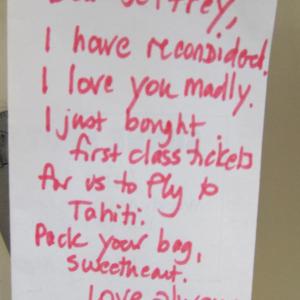 Dear Jeffrey,
I have recondidered.
I love you madly.
I just bought
first class tickets
for us to fly to
Tahiti.
Pack your bag,
sweetheart.
Love always